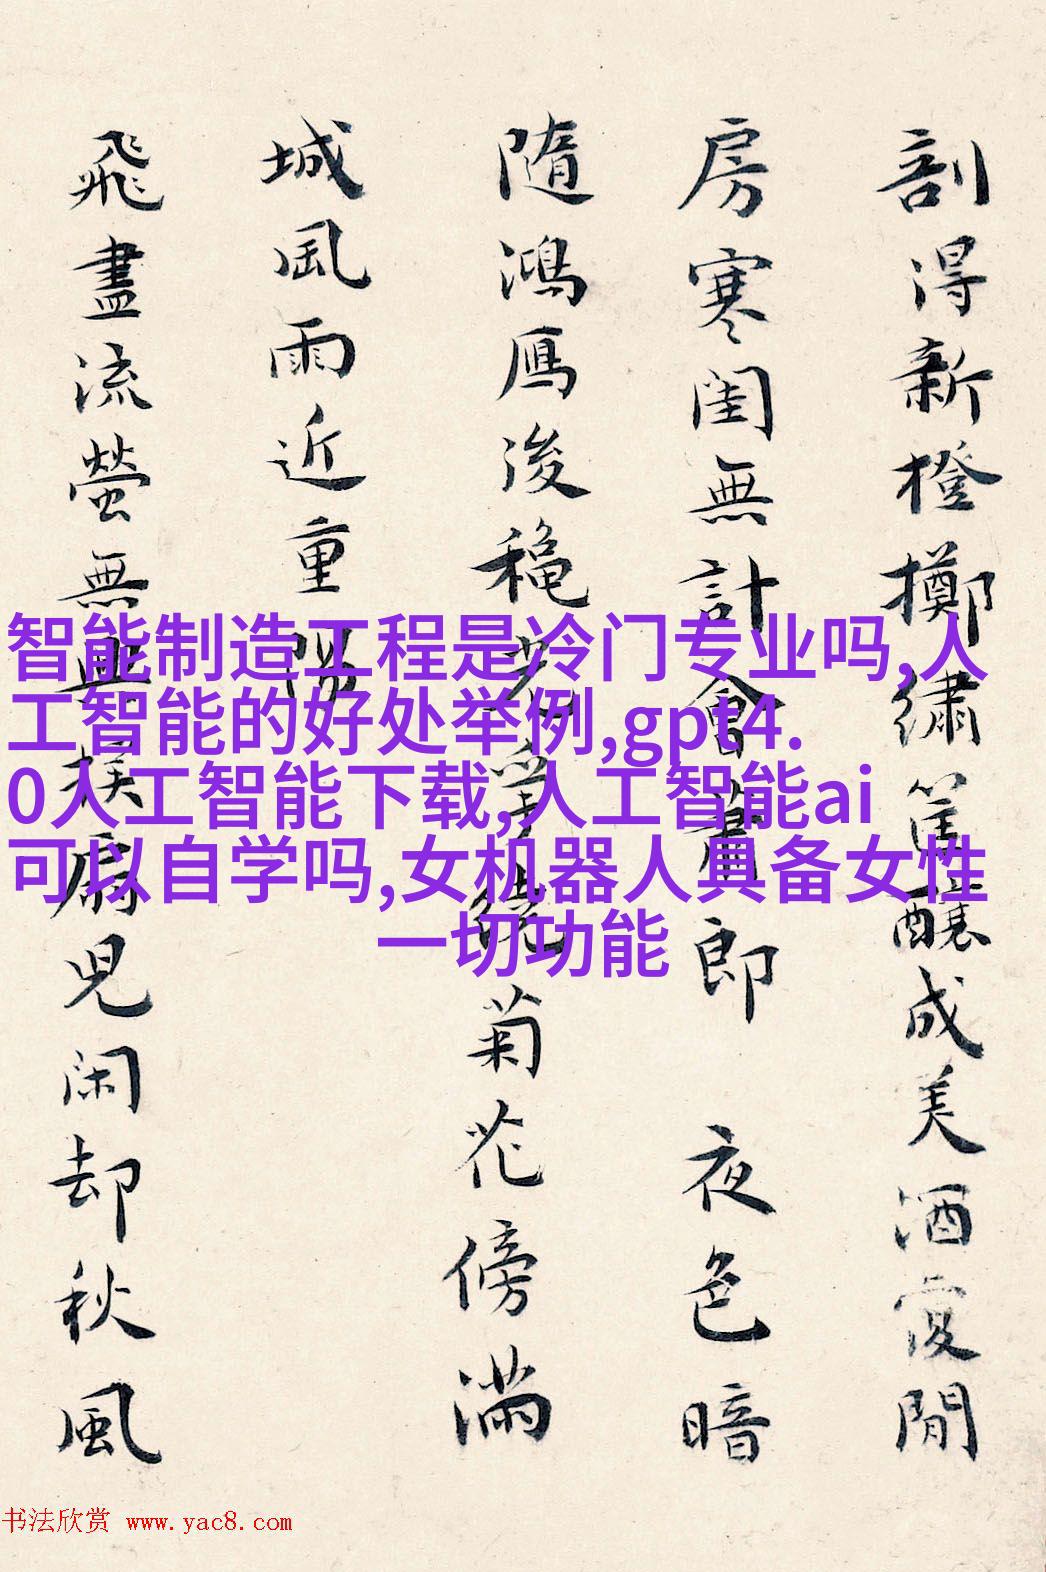 剖得新橙擲繡筐釀成美酒復閒
房寒閨無計會蕭郎 夜色暗
隨鴻雁後穐光牽繞菊花傍滿
城風雨近重陽
飛盡流螢無興撲扇兒閑却秋風
智能制造工程是冷门专业吗,人
工智能的好处举例,gpt4.
0人工智能下载,人工智能ai
可以自学吗,女机器人具备女性
一切功能
书法欣赏 www.yac8.com